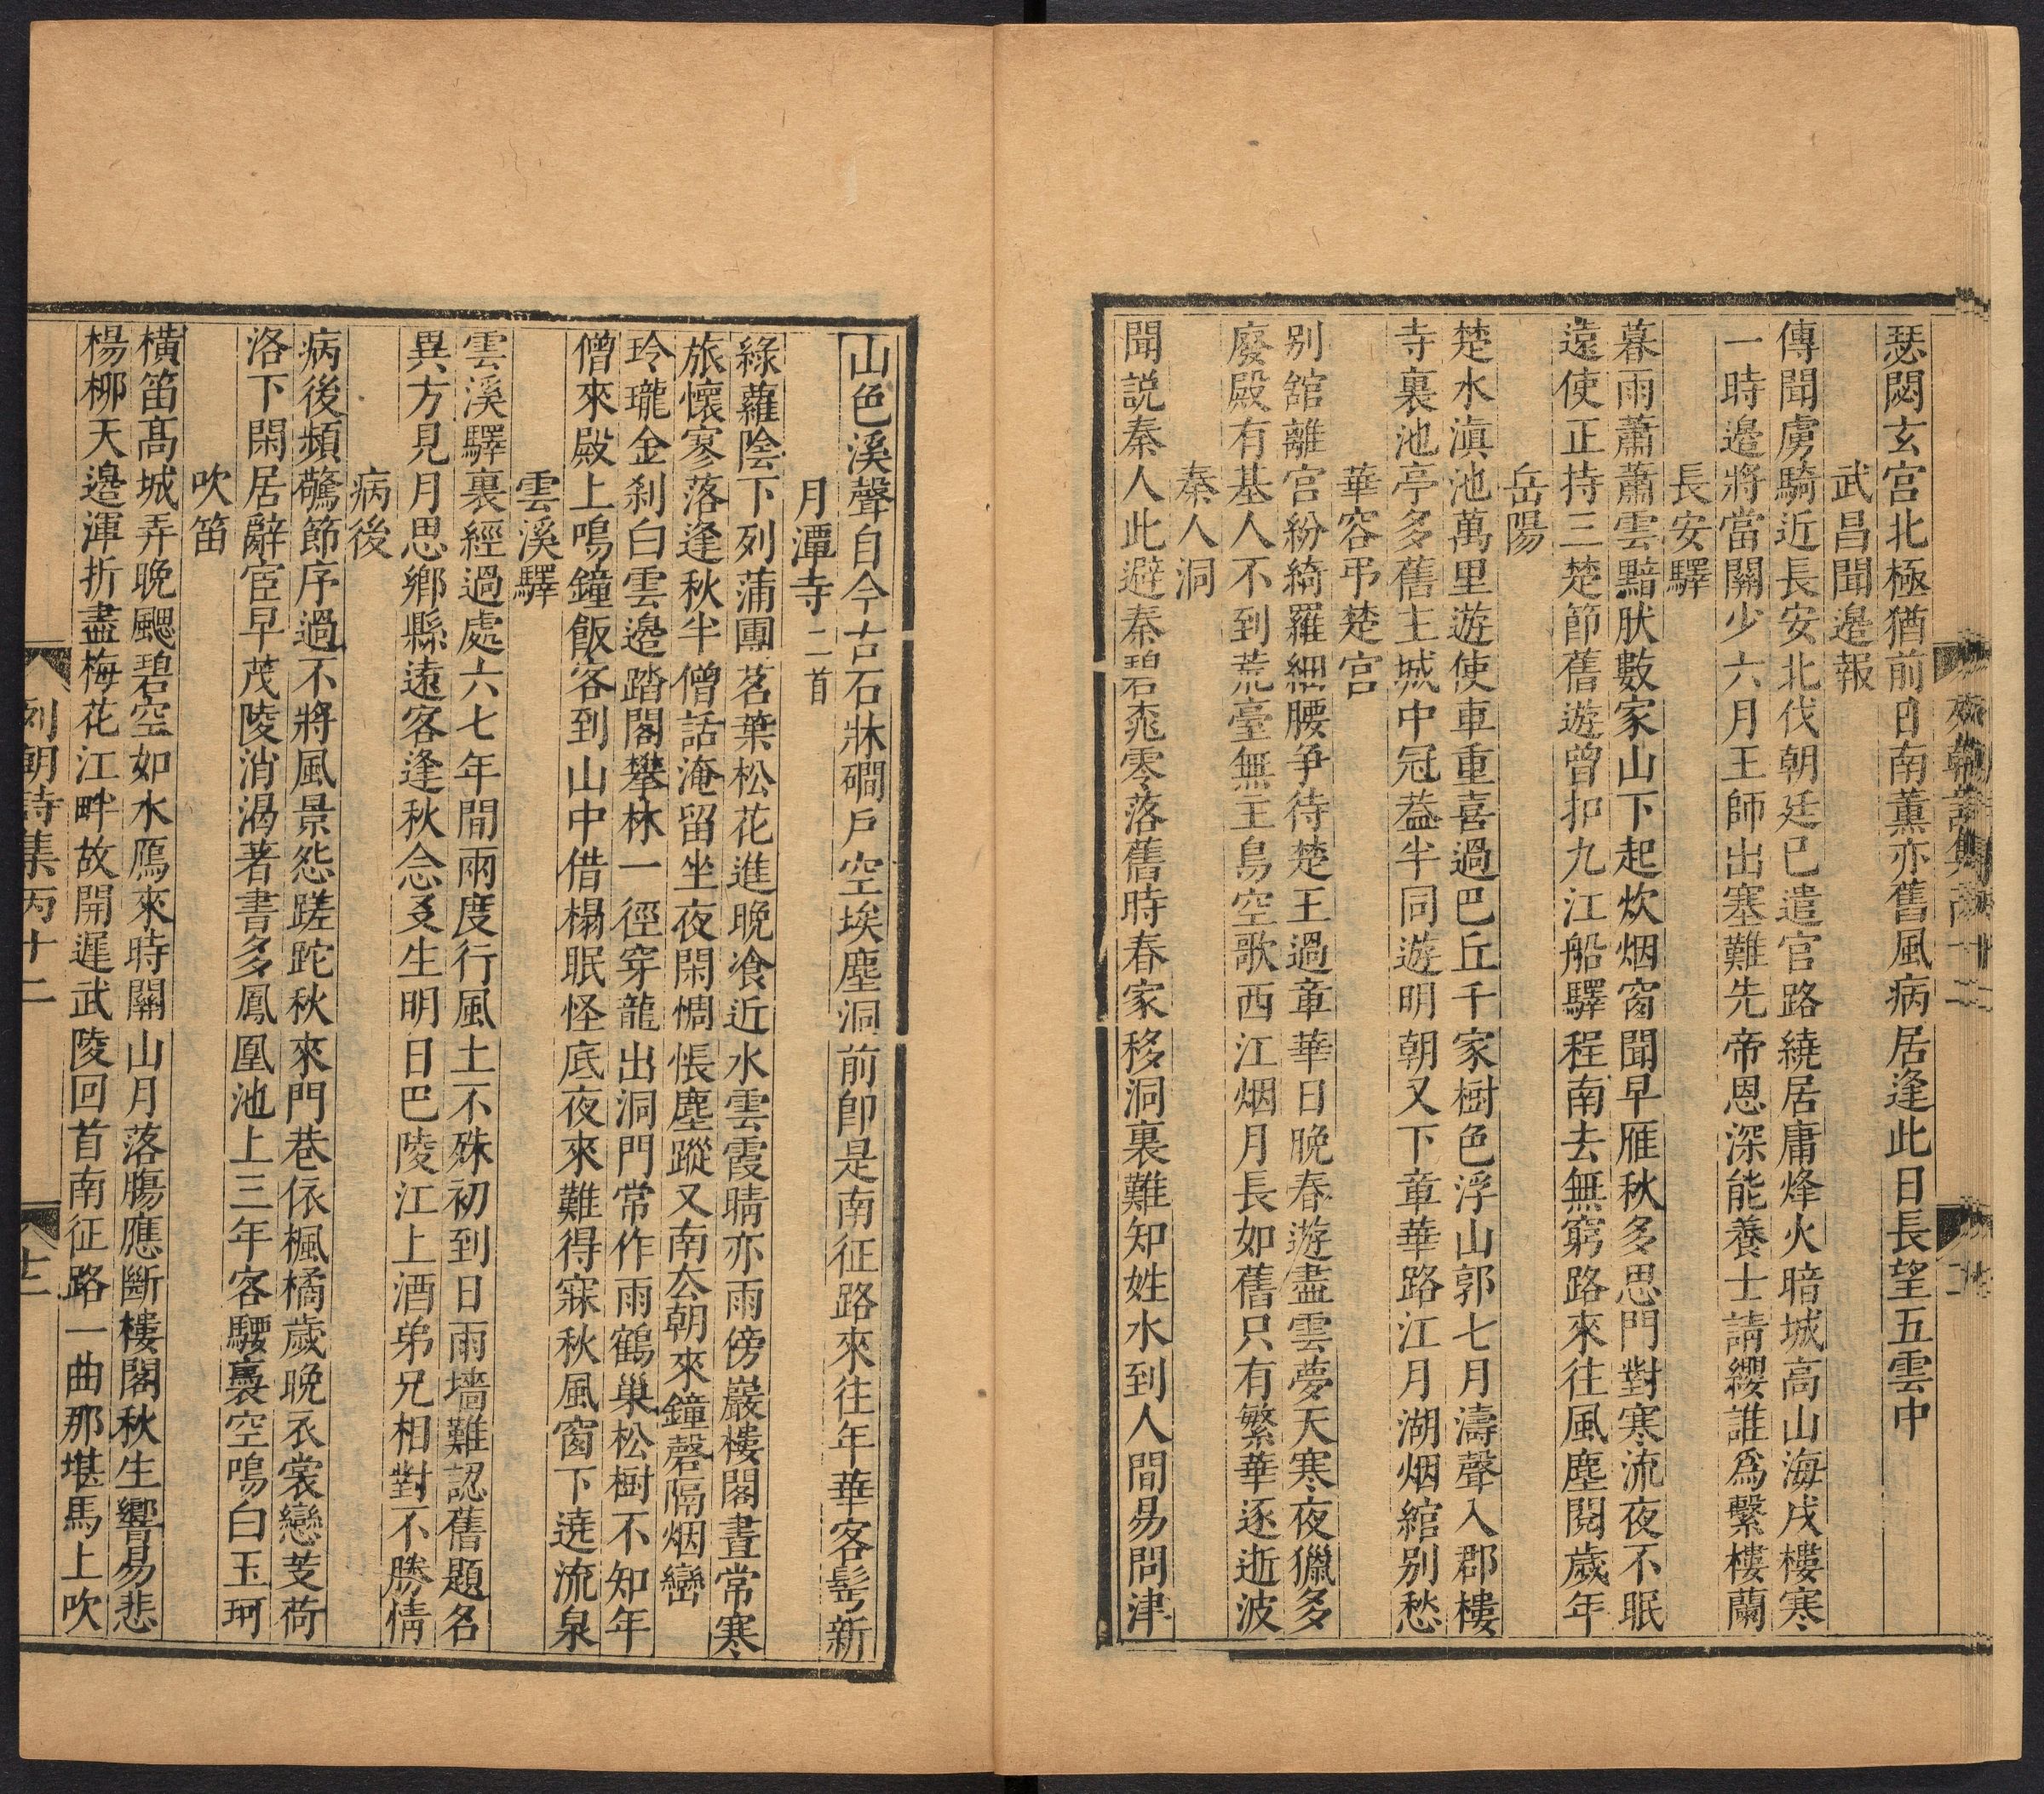 瑟閟玄宫北極猶前日南薰亦舊風病居逢此日長望五雲中
武昌聞邊報
傳聞虜騎近長安北伐朝廷已遣官路繞居庸烽火暗城高山海戍樓寒
一時邊將當關少六月王師出塞難先帝恩深能養士請纓誰爲繫樓蘭
長安驛
暮雨蕭蕭雲黯肰數家山下起炊烟窗聞早雁秋多思門對寒流夜不眠
遠使正持三楚節舊遊曾扣九江船驛程南去無窮路來往風塵閱歲年
岳陽
楚水滇池萬里遊使車重喜過巴丘千家樹色浮山郭七月濤聲入郡樓
寺裏池亭多舊主城中冠葢半同遊明朝又下章華路江月湖烟綰别愁
華容弔楚宫
别舘離宫紛綺羅細腰爭待楚王過章華日晚春遊盡雲夢天寒夜獵多
廢殿有基人不到荒臺無主鳥空歌西江烟月長如舊只有繁華逐逝波
秦人洞
聞説秦人此避秦碧桃零落舊時春家移洞裏難知姓水到人間易問津
山色溪聲自今古石牀磵戶空埃塵洞前卽是南征路來往年華客髩新
月潭寺二首
綠蘿陰下列蒲團茗葉松花進晚飡近水雲霞晴亦雨傍巖樓閣晝常寒
旅懷寥落逢秋半僧話淹留坐夜閑惆悵塵蹤又南去朝來鐘磬隔烟巒
玲瓏金刹白雲邊踏閣攀林一徑穿龍出洞門常作雨鶴巢松樹不知年
僧來殿上鳴鐘飯客到山中借榻眠怪底夜來難得寐秋風窗下遶流泉
雲溪驛
雲溪驛裏經過處六七年間兩度行風土不殊初到日雨墻難認舊題名
異方見月思鄉縣遠客逢秋念友生明日巴陵江上酒弟兄相對不勝情
病後
病後頻驚節序過不將風景怨蹉跎秋來門巷依楓橘歲晚衣裳戀芰荷
洛下閑居辭宦早茂陵消渴著書多鳳凰池上三年客騕褭空鳴白玉珂
吹笛
横笛髙城弄晚颸碧空如水鴈來時關山月落腸應斷樓閣秋生響易悲
楊柳天邊渾折盡梅花江畔故開遲武陵回首南征路一曲那堪馬上吹
列朝詩集丙十二